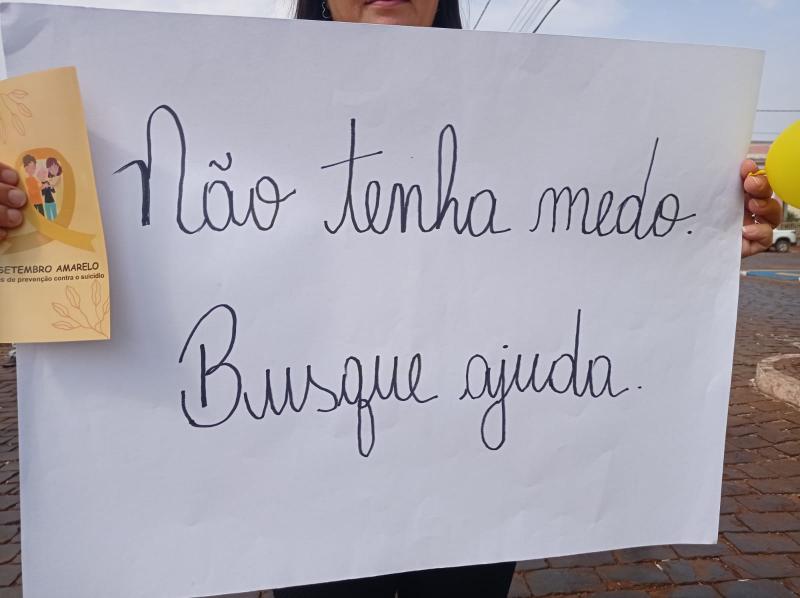 Não tenha medo.
Busque ajuda.
SETEMBRO AMARELO
de prevenção contra o suicídio